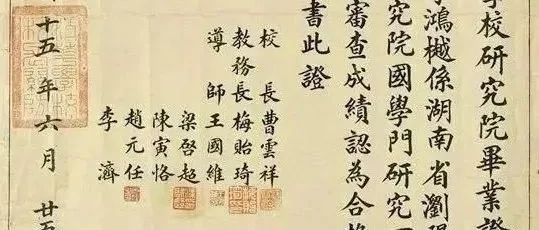 學校研究院畢業證
鴻樾係湖南省瀏陽
究院國學門研究
審查成績認為合格
書此證
校長曹雲祥
教務長梅貽琦
導師王國維
梁啓超
陳寅恪
趙元任
李濟
十五年六月廿五